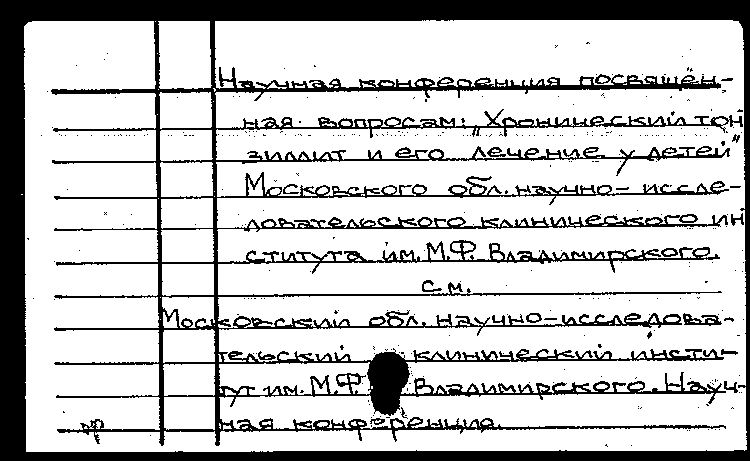 Научная конференция посвящён-
ная вопросам: „Хронический тон
зиллит и его лечение у детей"
Московского обл. научно-иссле-
довательского клинического ин
ститута им. М.Ф. Владимирского.
см.
Московский обл. научно-исследова-
тельский клинический инсти-
тут им. М.Ф. Владимирского. Науч-
ная конференция.